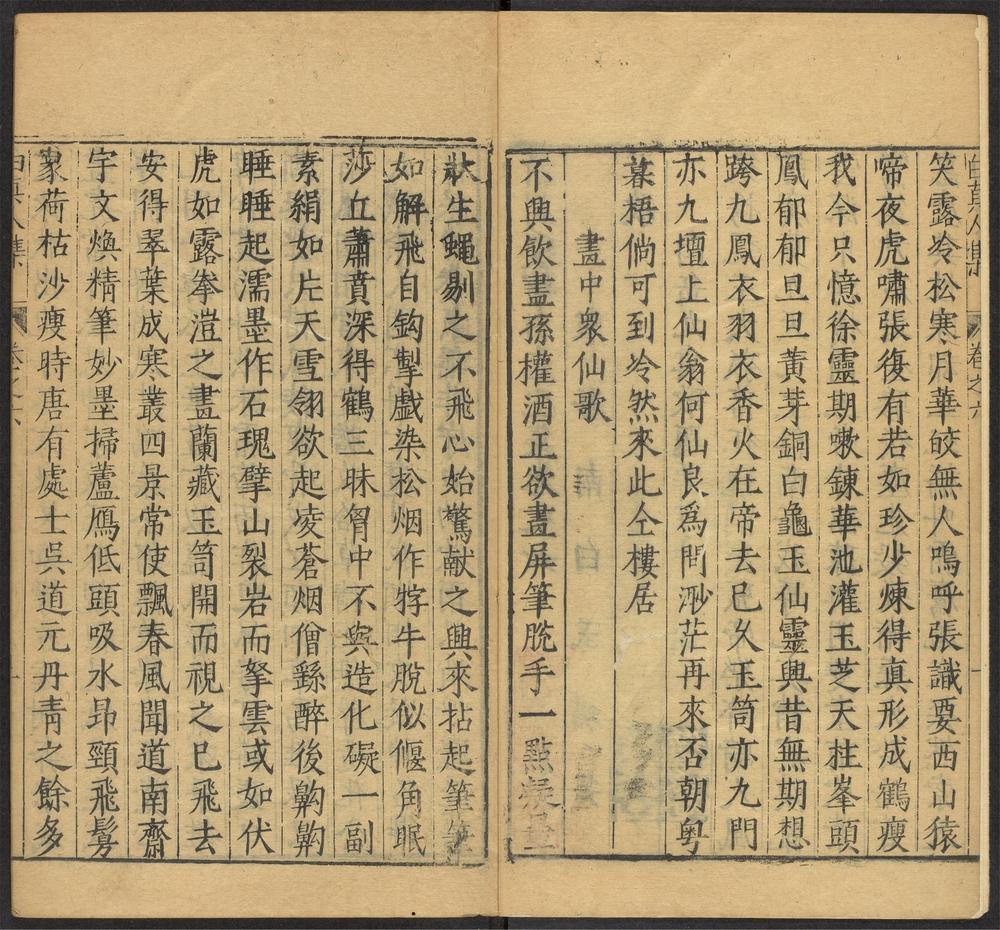 白真人集 卷之六
笑露冷松寒月華皎無人嗚呼張識要西山猿
啼夜虎嘯張復有若如珍少煉得真形成鶴瘦
我今只憶徐靈期嗽錬華池灌玉芝天柱峯頭
鳳郁郁旦旦黃芽銅白龜玉仙靈興昔無期想
跨九鳳衣羽衣香火在帝去巳久玉笥亦九門
亦九壇上仙翁何仙良爲問渺茫再來否朝粤
暮梧倘可到冷然來此仝樓居
畫中衆仙歌
不興飲盡孫權酒正欲畫屏筆脫手一點
狀生蠅剔之不飛心始驚献之興來拈起筆
如解飛自鈎掣戲染松烟作牸牛脫似偃角眠
莎丘蕭賁深得鶴三昧胷中不與造化礙一副
素絹如片天雪翎欲起凌蒼烟僧繇醉後齁齁
睡睡起濡墨作石瑰擘山裂岩而拏雲或如伏
虎如露拳澄之畫蘭藏玉笥開而視之巳飛去
安得翠葉成寒叢四景常使飄春風聞道南齋
宇文煥精筆妙墨掃蘆鴈低頭吸水昂頸飛鬐
冢荷枯沙瘦時唐有處士吳道元丹青之餘多
白真人集 卷之六